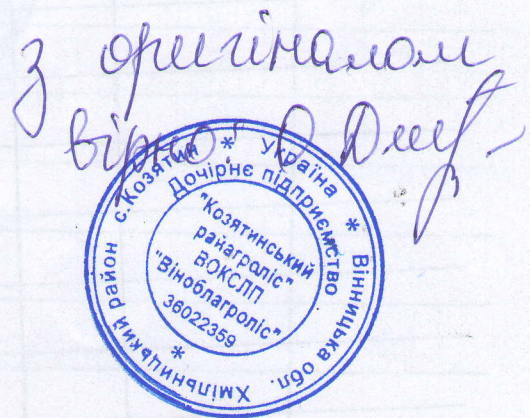 з оригіналом
вірно
* Україна * Вінницька обл. Хмільницький район с.Козятин
Дочірнє підприємство
"Козятинський
райагроліс"
ВОКСЛП
"Віноблагроліс"
36022359
*